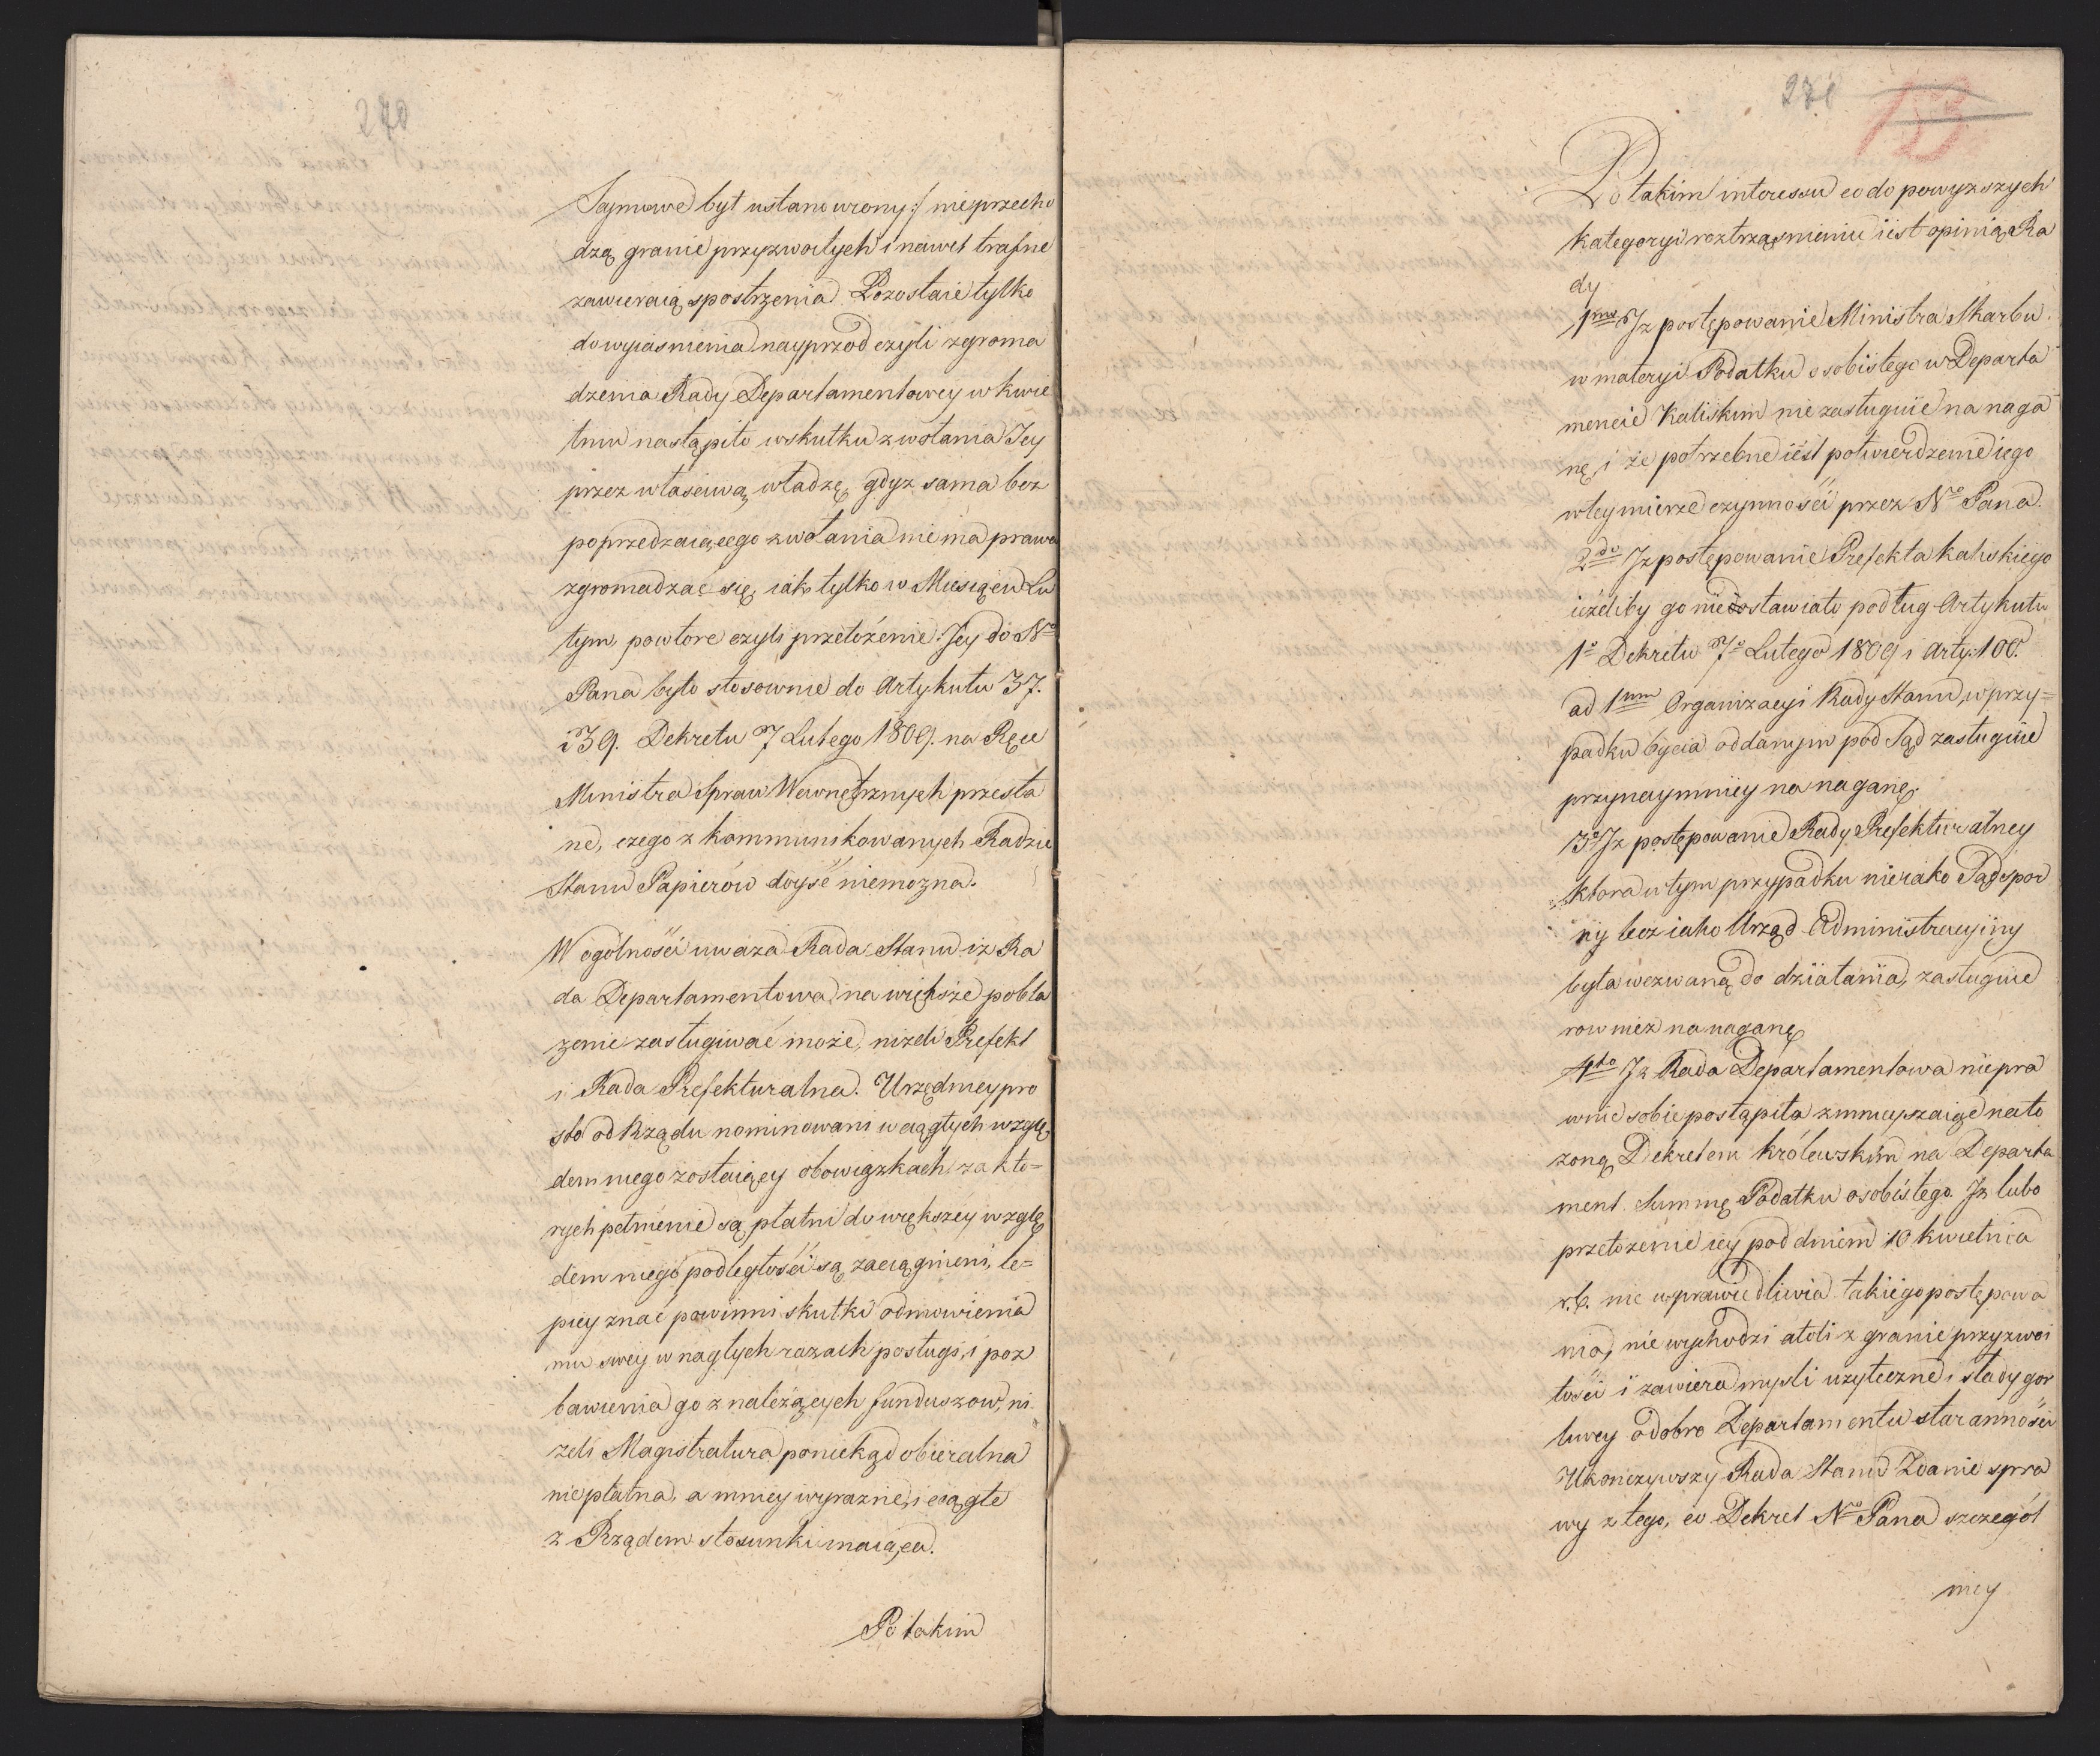 270
Sejmowe był ustanowiony:/ nieprzecho
dzą granic przyzwoitych i nawet trafne
zawieraią spostrzenia. Pozostaie tylko
do wyiasnienia nayprzod czyli zgroma
dzenia Rady Departamentowey w kwie
tniu nastąpiło wskutku zwołania Jey
przez właściwą władzę, gdyz sama bez
poprzedzaiącego zwołania nie ma prawa
zgromadzać się, iak tylko w Miesiącu Lu
tym, powtore czyli przełożenie Jey do No
Pana było stosownie do Artykułu 37.
i 39. Dekretu 7 Lutego 1809. na Ręce
Ministra Spraw Wewnętrznych przesła
ne, czego z kommunikowanych Radzie
Stanu Papierów doyść niemozna.
W ogólności uwaza Rada Stanu iz Ra
da Departamentowa na większe pobła
zenie zasługiwać może, nizeli Prefekt
i Rada Prefekturalna. Urzędnicy pro
sto od Rządu nominowani w ciągłych wzglę
dem niego zostaiący obowiązkach za kto=
rych pełnienie są płatni do większey wzglę
dem niego podległości są zaciągnieni, le=
piey znać powinni skutki odmowienia
mu swey w nagłych razach posługi, i poz
bawienia go z należących funduszow, ni
zeli Magistratura poniekąd obieralna
niepłatna, a mniey wyrazne, i ciągłe
z Rządem stosunki maiąca.
Po takim
271
153
Po takim interessu co do powyzszych
kategoryi roztrząsnieniu iest opinią Ra
dy
1mo Jz postępowanie Ministra Skarbu
w materyi Podatku osobistego w Departa
mencie Kaliskim nie zasługuie na naga
nę, i że potrzebne iest potwierdzenie iego
w tey mierze czynności przez No Pana.
2do Jz postępowanie Prefekta kaliskiego
ieżeliby go nie dostawiało podług Artykułu
1o Dekretu 7o Lutego 1809 i Arty. 100.
ad 1mm Organizacyi Rady Stanu, w przy=
padku bycia oddanym pod Sąd zasługuie
przynaymniey na naganę.
3o Jz postępowanie Rady Prefekturalney
ktora w tym przypadku nie iako Sąd spor
ny lecz iako Urząd Administracyiny
była wezwaną do działania, zasługuie
rowniez na naganę
4to Jz Rada Departamentowa niepra
wnie sobie postąpiła zmnieyszaiąc nało
zoną Dekretem królewskim na Departa
ment Summę Podatku osobistego. Jz lubo
przełozenie iey pod dniem 10 kwietnia
r.b. nie usprawiedliwia takiego postępowa
nia, nie wychodzi atoli z granic przyzwoi
tości i zawiera mysli uzyteczne i slady gor
liwey o dobro Departamentu staranności
Ukończywszy Rada Stanu Zdanie spra
wy z tego, co Dekret No Pana szczegól
niey